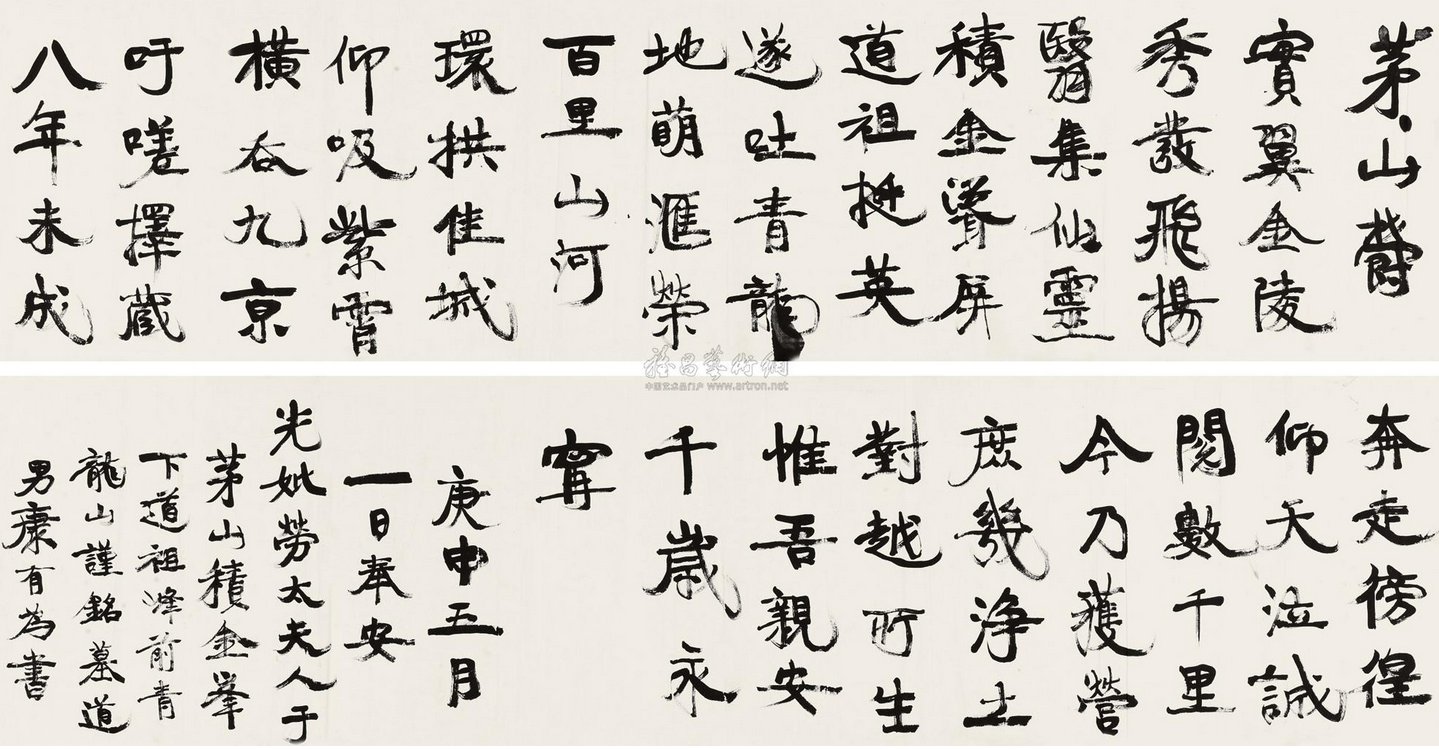 茅山鬱
實翼金陵
秀發飛揚
翳集仙靈
積金聳屏
道祖挺英
遂吐青龍
地萌滙榮
百里山河
環拱佳城
仰吸紫霄
橫吞九京
吁嗟擇藏
八年未成
奔走徬徨
仰天泣誠
閱數千里
今乃獲營
庶幾淨土
對越所生
惟吾親安
千歲永
寗
庚申五月
一日奉安
先妣勞太夫人于
茅山積金峯
下道祖峰前青
龍山謹銘墓道
男康有為書
雅昌藝術網
中国艺术品门户 www.artron.net